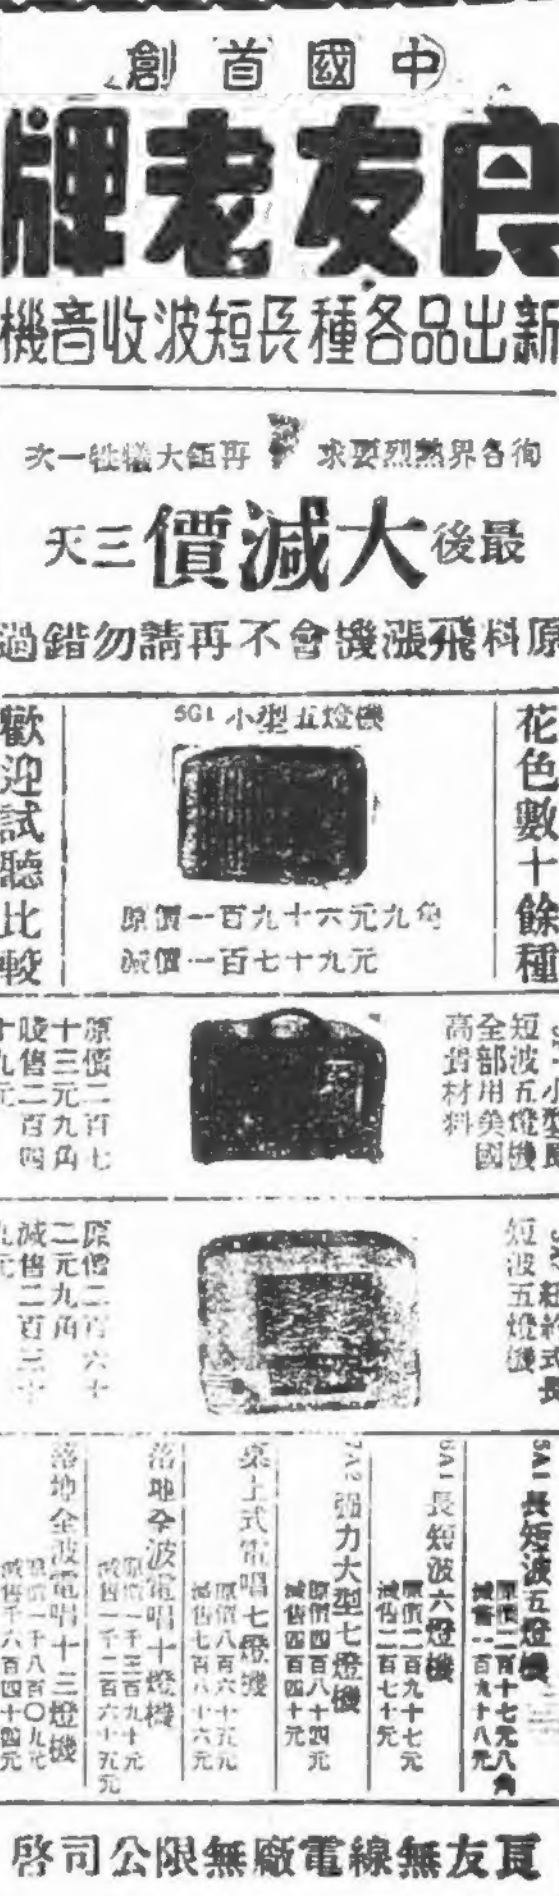 中國首創
良友老牌
新出品各種長短波收音機
徇各界熱烈要求
再鉅大犧牲一次
最後大減價三天
原料飛漲機會不再請勿錯過
花色數十餘種
5G1 小型五燈機
原價一百九十六元九角
減價一百七十九元
歡迎試聽比較
短波五燈機
全部用美國
高貴材料
原價二百七
十三元九角
二百四
十九元
短波五燈機
原價二百六十
二元九角
減售二百三十
九元
5A1 長短波五燈機
原價二百十七元八角
減售一百九十八元
6A1 長短波六燈機
原價二百九十七元
減售二百七十元
7A2 强力大型七燈機
原價四百八十四元
減售四百四十元
桌上式電唱七燈機
原價八百六十五元
減售七百八十六元
落地全波電唱十燈機
原價一千三百九十元
減售一千二百六十五元
落地全波電唱十三燈機
原價一千八百〇九元
減售千六百四十四元
良友無線電廠無限公司啓